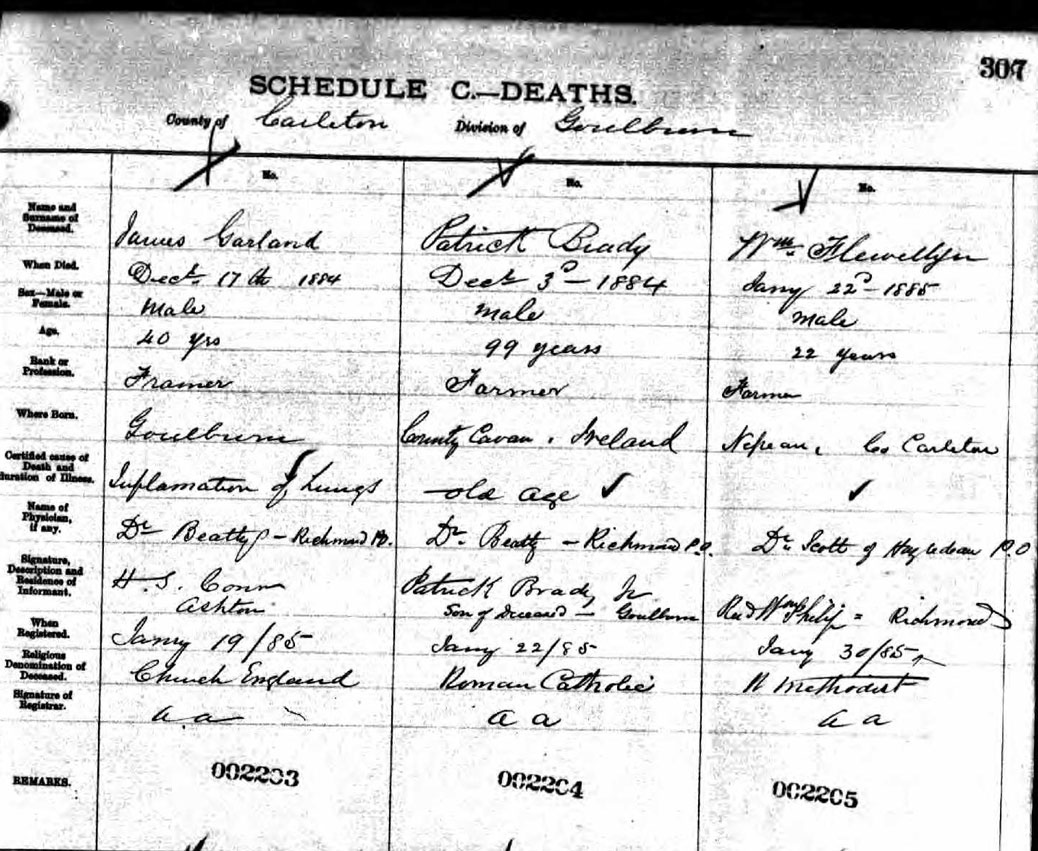 307
SCHEDULE C.—DEATHS.
County of Carleton Division of Goulburn
No. No. No.
Name and Surname of Deceased. James Garland Patrick Brady Wm Flewellyn
When Died. Decr 17th 1884 Decr 3d - 1884 Jany 22d - 1885
Sex—Male or Female. Male male male
Age. 40 yrs 99 years 22 years
Rank or Profession. Framer Farmer Farmer
Where Born. Goulburn County Cavan, Ireland Nepean, Co Carleton
Certified cause of Death and Duration of Illness. Inflamation of Lungs old age
Name of Physician, if any. Dr Beatty - Richmond P.O. Dr Beatty - Richmond P.O. Dr Scott of P.O
Signature, Description and Residence of Informant. H. S. Conn Patrick Brady Jr
Ashton Son of Deceased - Goulburn Revd Wm Philip = Richmond
When Registered. Jany 19/85 Jany 22/85 Jany 30/85
Religious Denomination of Deceased. Church England Roman Catholic Methodist
Signature of Registrar. a a a a a a
REMARKS. 002203 002204 002205